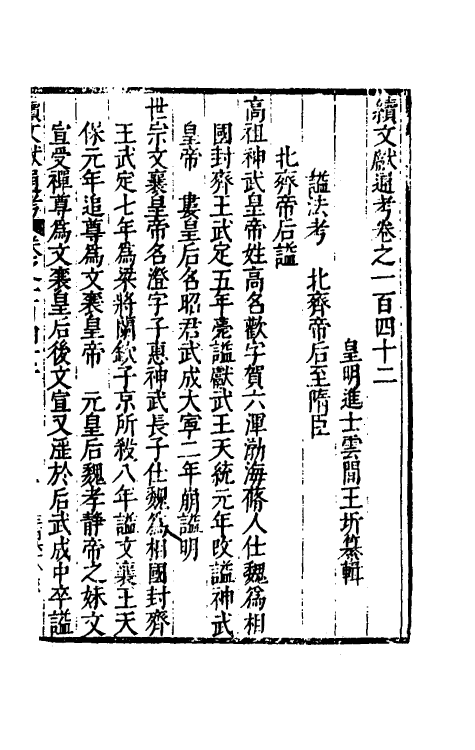 續文獻通考卷之一百四十二
皇明進士雲間王圻纂輯
諡法考 北齊帝后至隋臣
北齊帝后諡
高祖神武皇帝姓高名歡字賀六渾渤海蓨人仕魏爲相
國封齊王武定五年薨諡獻武王天統元年改諡神武
皇帝 婁皇后名昭君武成大寧二年崩諡明
世宗文襄皇帝名澄字子惠神武長子仕魏爲相國封齊
王武定七年爲梁將蘭欽子京所殺八年諡文襄王天
保元年追尊爲文襄皇帝 元皇后魏孝靜帝之妹文
宣受禪尊爲文襄皇后後文宣又滛於后武成中卒諡
續文獻通考